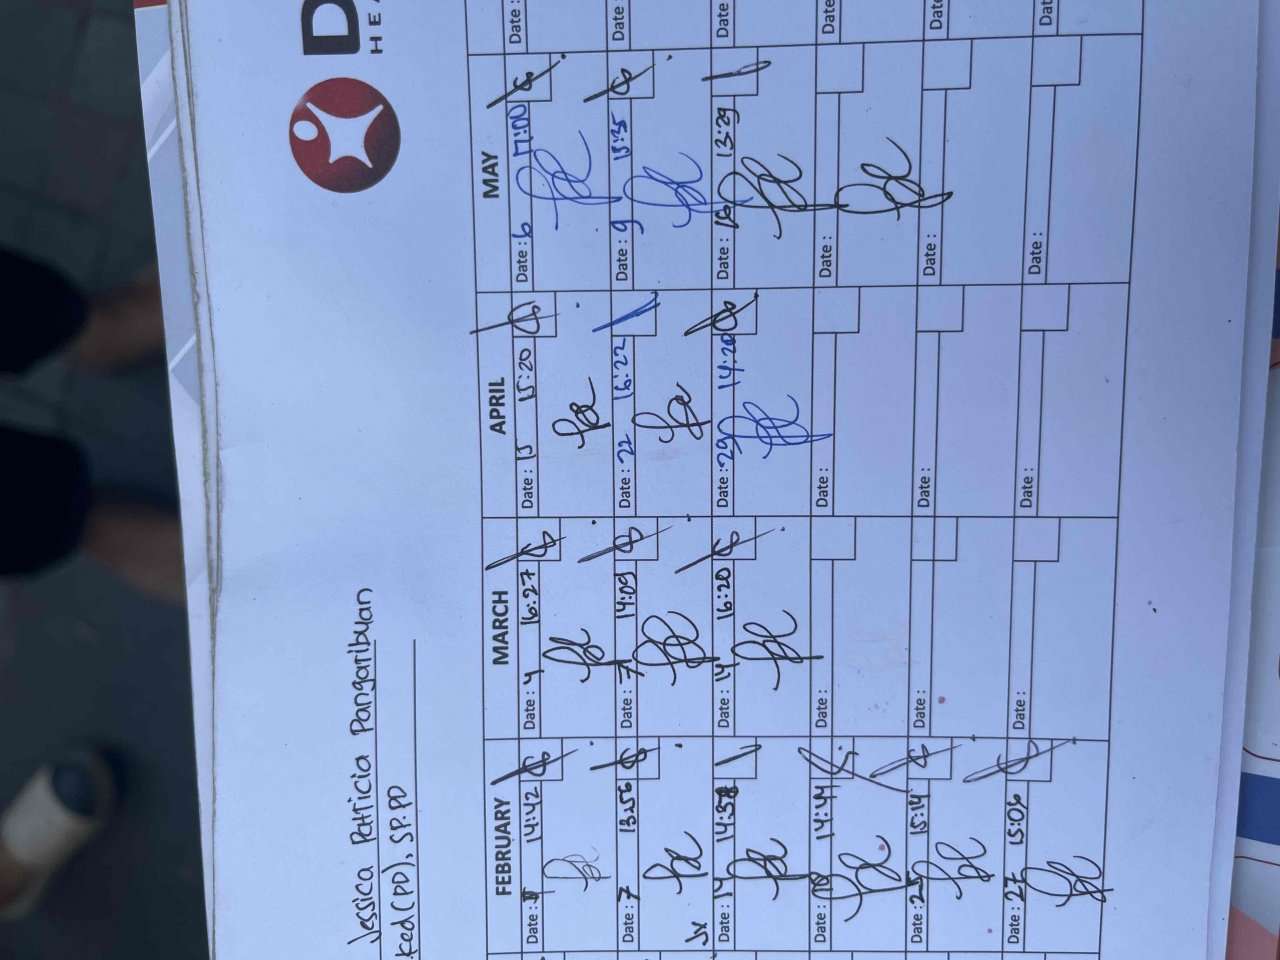 D
HEA
Jessica Patricia Pangaribuan
ked(PD), SP.PD
FEBRUARY MARCH APRIL MAY
Date: 14:42 Date: 4 16:27 Date: 15:20 Date: 6 17:00 Date:
Date: 7 13:56 Date: 7 14:09 Date: 22 16:22 Date: 9 Date:
Date: 14 14:58 Date: 14 16:20 Date: 29 14:20 Date: 16 13:29 Date
Date: 14:44 Date: Date: Date: Date
Date: 25 15:14 Date: Date: Date: Date
Date: 27 15:06 Date: Date: Date: Dat